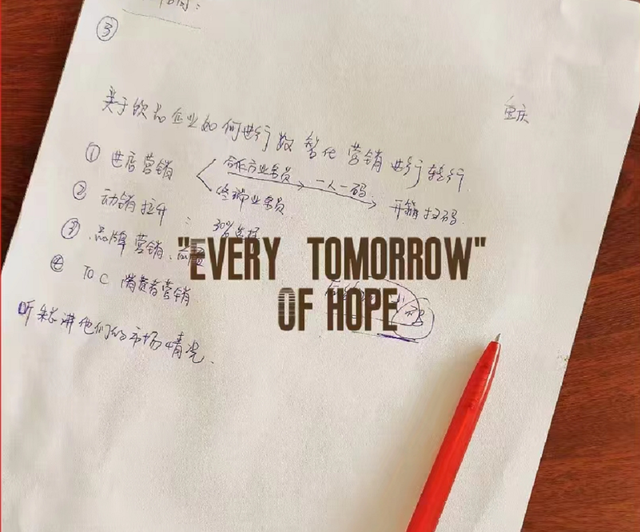 ③
重庆
关于饮品企业如何进行数智化营销进行转行
① 进店营销
合伙商业务员
一人一码
终端业务员
开箱扫码
② 动销拉升:
③ 品牌营销
④ TO C 消费者营销
听 讲他们的市场情况.
"EVERY TOMORROW"
OF HOPE